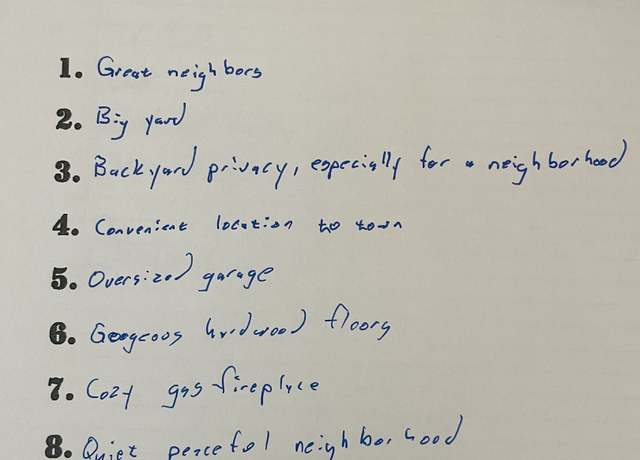 1. Great neighbors
2. Big yard
3. Backyard privacy, especially for a neighborhood
4. Convenient location to town
5. Oversized garage
6. Georgeous hardwood floors
7. Cozy gas fireplace
8. Quiet peaceful neighborhood